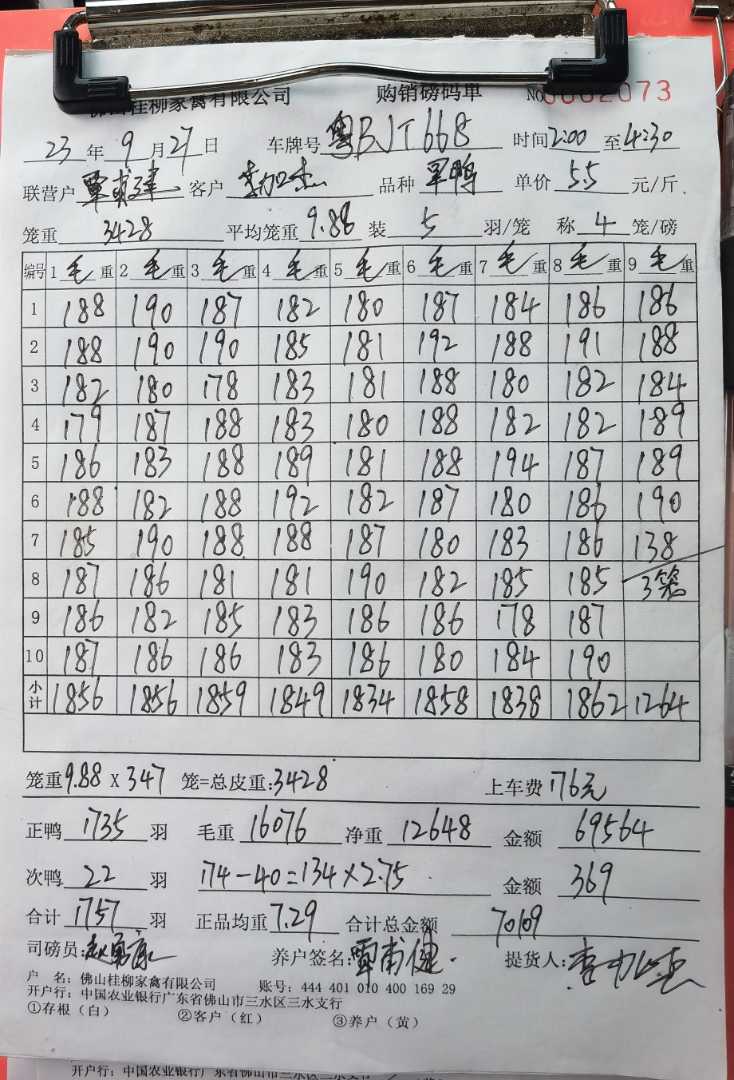 佛山桂柳家禽有限公司 购销磅码单 No 0002073
23 年 9 月 27 日 车牌号 粤BJT668 时间 2:00 至 4:30
联营户 覃甫建 客户 品种 单价 5.5 元/斤
笼重 3428 平均笼重 9.88 装 5 羽/笼 称 4 笼/磅
编号 1 毛 重 2 毛 重 3 毛 重 4 毛 重 5 毛 重 6 毛 重 7 毛 重 8 毛 重 9 毛 重
1 188 190 187 182 180 187 184 186 186
2 188 190 190 185 181 192 188 191 188
3 182 180 178 183 181 188 180 182 184
4 179 187 188 183 180 188 182 182 189
5 186 183 188 189 181 188 194 187 189
6 188 182 188 192 182 187 180 186 190
7 185 190 188 188 187 180 183 186 138
8 187 186 181 181 190 182 185 185 3笼
9 186 182 185 183 186 186 178 187
10 187 186 186 183 186 180 184 190
小计 1856 1856 1859 1849 1834 1858 1838 1862 1264
笼重 9.88 X 347 笼=总皮重:3428 上车费 176元
正鸭 1735 羽 毛重 16076 净重 12648 金额 69564
次鸭 22 羽 174-40=134×2.75 金额 369
合计 1757 羽 正品均重 7.29 合计总金额 70109
司磅员: 养户签名: 覃甫健 提货人:
户 名: 佛山桂柳家禽有限公司 账号: 444 401 010 400 169 29
开户行: 中国农业银行广东省佛山市三水区三水支行
①存根（白） ②客户（红） ③养户（黄）
开户行: 中国农业银行广东省佛山市三水区三水支行